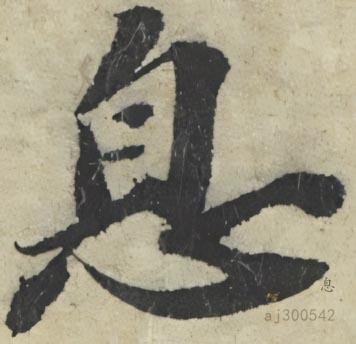 息
息
aj300542